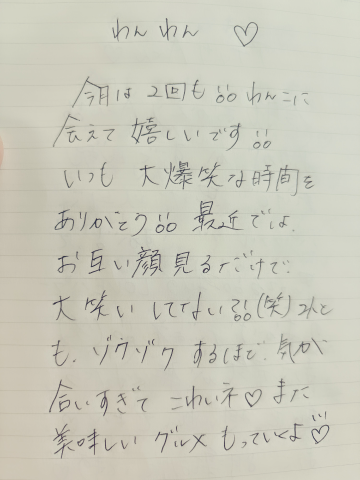 わんわん ♡
今月は2回も!!! わんこに
会えて 嬉しいです!!!
いつも 大爆笑な時間を
ありがとう!!! 最近では、
お互い顔見るだけで
大笑いしてない!?!!(笑)
も、ゾクゾク するほど、気が
合いすぎて こわいネ♡ また
美味しい グルメ もっていくよ♡